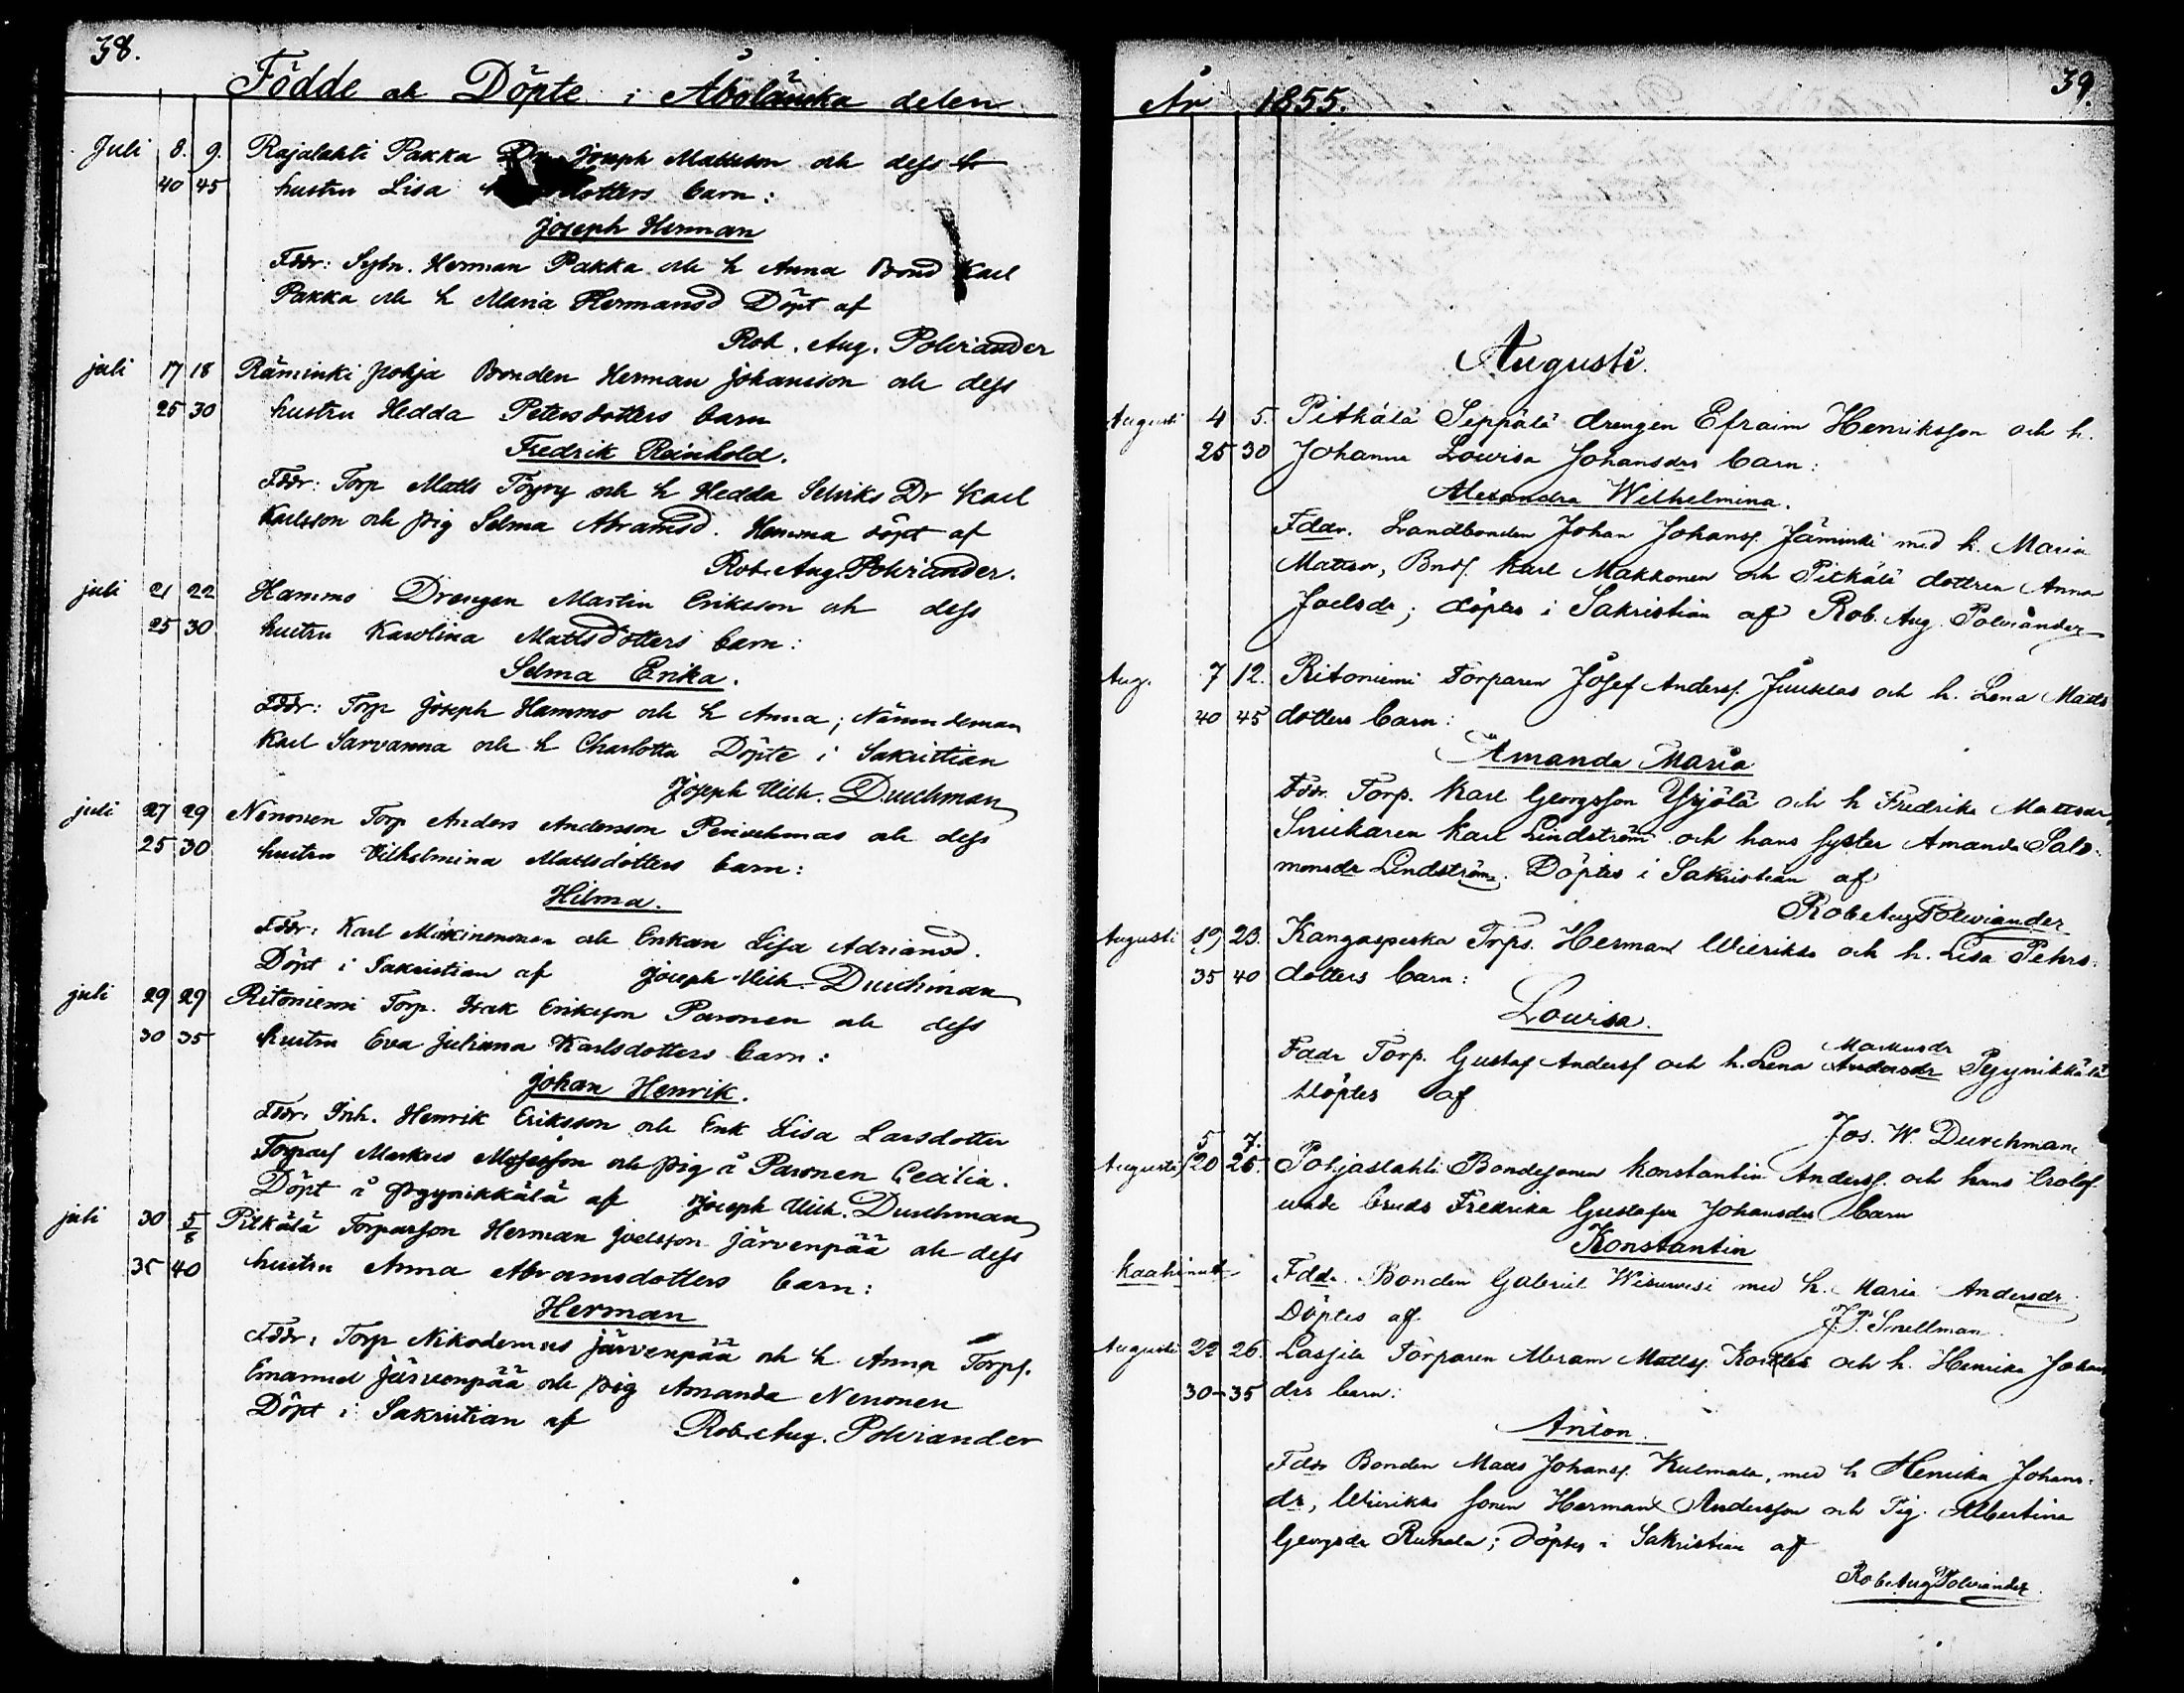 38.
Födde och Döpte i Åbolänska delen
Juli 8. 9. Rajalahti Pakka Dr Joseph Mattsson och dess
40 45 hustru Lisa dotters barn:
Joseph Herman
Fddr: Sytn. Herman Pakka och h Anna Bond Karl
Pakka och h Maria Hermansd Döpt af
Rob. Aug. Polviander
juli 17 18 Räminki Pohja Bonden Herman Johansson och dess
25 30 hustru Hedda Petersdotters barn
Fredrik Reinhold.
Fddr: Torp Matts Töyry och h Hedda Dr Karl
Karlsson och pig Selma Abramsd. Hemma döpt af
Rob. Aug. Polviander.
juli 21 22 Hammo Drengen Martin Eriksson och dess
25 30 hustru Karolina Mattsdotters barn:
Selma Erika.
Fddr: Torp Joseph Hammo och h Anna; Nämndeman
Karl Sarvanna och h Charlotta Döpte i Sakristian
Joseph Wilh. Durchman
juli 27 29 Nenonen Torp Anders Andersson och dess
25 30 hustru Vilhelmina Mattsdotters barn:
Hilma.
Fddr: Karl och Enkan Lisa Adriansd.
Döpt i Sakristian af Joseph Wilh. Durchman
juli 29 29 Ritoniemi Torp. Isak Eriksson Paronen och dess
30 35 hustru Eva Juliana Karlsdotters barn:
Johan Henrik.
Fddr: Inh. Henrik Eriksson och Enk Lisa Larsdotter
Torpars Markus och pig å Paronen Cecilia.
Döpt å Pyynikkälä af Joseph Wilh. Durchman
juli 30 5/8 Pitkälä Torparson Herman Joelsson Järvenpää och dess
35 40 hustru Anna Abramsdotters barn:
Herman
Fddr: Torp Nikodemus Järvenpää och h Anna Torps.
Emanuel Järvenpää och pig Amanda Nenonen
Döpt i Sakristian af Rob. Aug. Polviander
39.
År 1855.
Augusti.
Augusti 4 5. Pitkälä Seppälä drengen Efraim Henriksson och h.
25 30 Johanna Lovisa Johansdrs barn:
Alexandra Wilhelmina.
Fddr. Landbonden Johan Johanss. Jäminki med h. Maria
Mattsdr, Bnds. Karl Makkonen och Pitkälä dottren Anna
Joelsdr; döptes i Sakristian af Rob. Aug. Polviander
Aug. 7 12. Ritoniemi Torparen Josef Anderss. Juuselas och h. Lena Matts
40 45 dotters barn:
Amanda Maria
Fddr. Torp. Karl Georgsson Yrjölä och h Fredrika Mattsdr,
Snickaren Karl Lindström och hans syster Amanda Salo-
monsdr Lindström. Döptes i Sakristian af
Rob Aug Polviander
Augusti 19 23. Kangaspeska Trps. Herman Wieriks och h. Lisa Pehrs-
35 40 dotters barn:
Lovisa.
Fddr Torp. Gustaf Anderss och h. Lena Andersdr Markusdr Pyynikkälä
Döptes af
Jos. W. Durchman
5 7.
Augusti 20 25. Pohjaslahti Bondesonen Konstantin Anderss. och hans trolof-
vade bruds Fredrika Gustafva Johansdrs barn
Konstantin
Kaahinut Fddr. Bonden Gabriel Wisuvesi med h. Maria Andersdr.
Döptes af J. P. Snellman.
Augusti 22 26. Lasjila Torparen Abram Mattss. och h. Henrika Johans
30 35 drs barn:
Anton.
Fddr Bonden Matts Johanss. Kulmala, med h Henrika Johans-
dr, Wieriks sonen Herman Andersson och Pig. Albertina
Georgsdr Ruhala; döptes i Sakristian af
Rob Aug Polviander.